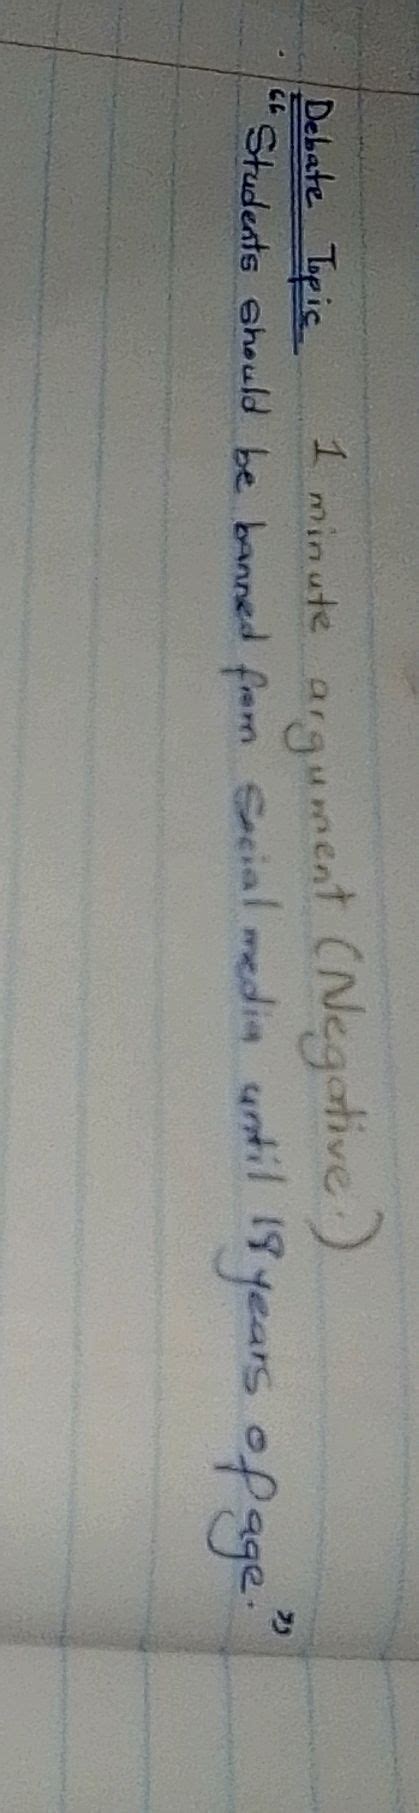 Debate Topic 1 minute argument (Negative.)
"Students should be banned from social media until 18 years of age."